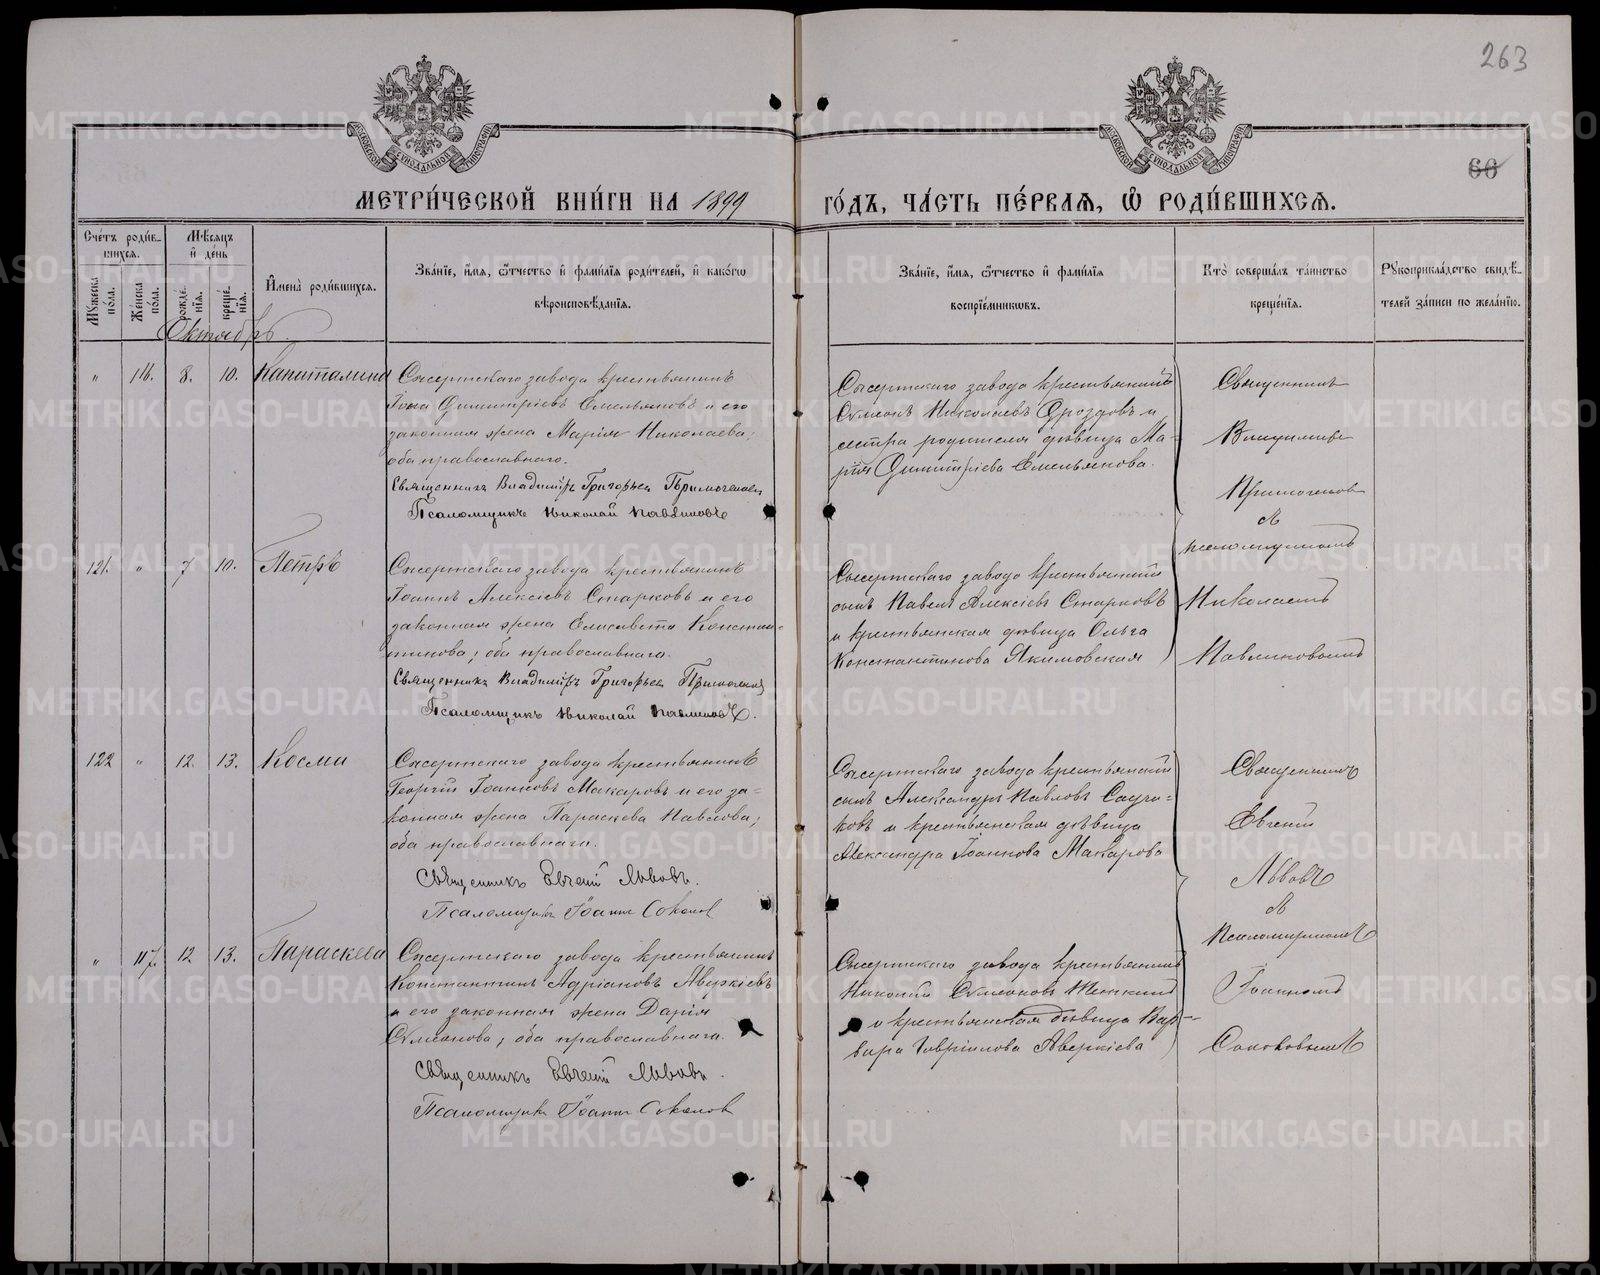 263
60
МЕТРИ́ЧЕСКОЙ КНИ́ГИ НА 1899
ГО́ДЪ, ЧА́СТЬ ПЕ́РВАѦ, Ѡ РОДИ́ВШИХСѦ.
Сче́тъ роди́в-
шихсѧ.
Мꙋ́жеска по́ла.
Же́нска по́ла.
Мѣ́сѧцъ и҆ де́нь
рожде́нїѧ.
креще́нїѧ.
И҆мена̀ роди́вшихсѧ.
Зва́нїе, и҆́мѧ, ѻ҆́тчество и҆ фами́лїѧ роди́телей, и҆ како́гѡ
вѣроисповѣ́данїѧ.
Зва́нїе, и҆́мѧ, ѻ҆́тчество и҆ фами́лїѧ
воспрїе́мникѡвъ.
Кто̀ соверша́лъ та́инство
креще́нїѧ.
Рꙋкоприкла́дство свидѣ́-
телей за́писи по жела́нїю.
Октябрь
" 116. 8. 10. Капитолина
Сысертскаго завода крестьянинъ
Іона Димитріевъ Емельяновъ и его
законная жена Марія Николаева,
оба православнаго.
Священникъ Владиміръ Григорьев
Псаломщикъ Николай Павлиновъ
Сысертскаго завода крестьянинъ
Сѵмеонъ Николаевъ Дроздовъ и
сестра родителя дѣвица Ма-
рія Димитріева Емельянова.
Священникъ
Владиміръ
Примогенов
и
псаломщикомъ
Николаемъ
Павлиновымъ
121. " 7 10. Петръ
Сысертскаго завода крестьянинъ
Іоаннъ Алексіевъ Старковъ и его
законная жена Елисавета Констан-
тинова, оба православнаго.
Священникъ Владиміръ Григорьев
Псаломщикъ Николай Павлиновъ.
Сысертскаго завода крестьянскій
сынъ Павелъ Алексіевъ Старковъ
и крестьянская дѣвица Ольга
Константинова Якимовская
122 " 12. 13. Косма
Сысертскаго завода крестьянинъ
Георгій Іоанновъ Макаровъ и его за-
конная жена Параскева Павлова,
оба православнаго.
Священникъ Евгеній Львовъ.
Псаломщикъ Іоаннъ Соколов
Сысертскаго завода крестьянскій
сынъ Александръ Павловъ
и крестьянская дѣвица
Александра Іоаннова Макарова
Священникъ
Евгеній
Львовъ
и
Псаломщикомъ
Іоанномъ
Соколовымъ
" 117. 12 13. Параскева
Сысертскаго завода крестьянинъ
Константинъ Адріановъ Аверкіевъ
и его законная жена Дарія
Сѵмеонова, оба православнаго.
Священникъ Евгеній Львовъ.
Псаломщикъ Іоаннъ Соколов
Сысертскаго завода крестьянинъ
Николай Сѵмеоновъ
и крестьянская дѣвица Вар-
вара Гавріилова Аверкіева
METRIKI.GASO-URAL.RU